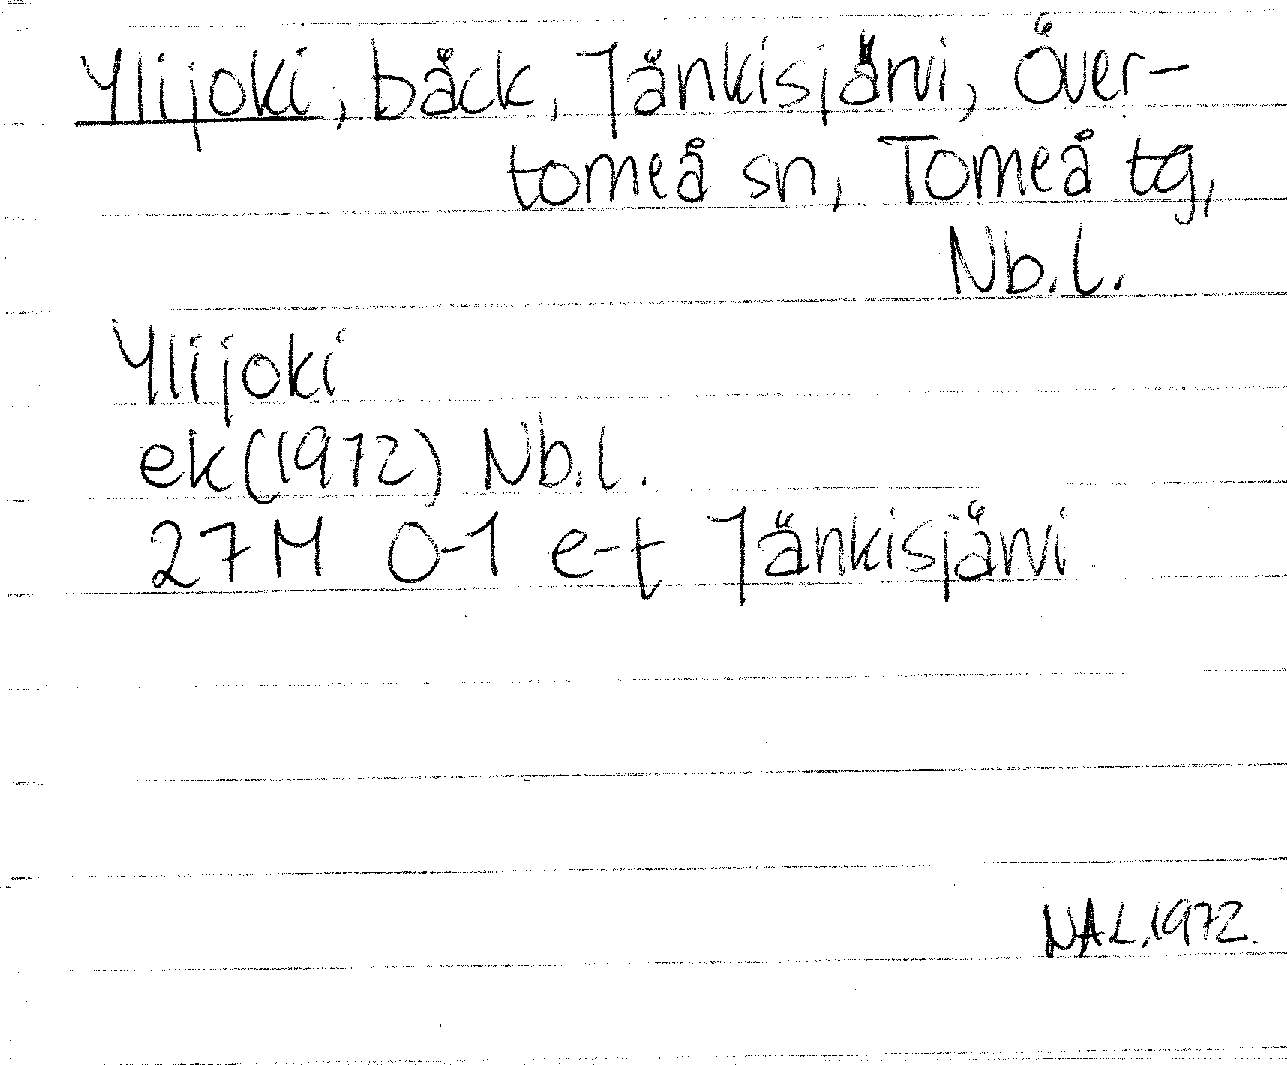 Ylijoki, bäck, Jänkisjärvi, Över-
torneå sn, Torneå tg,
Nb.l.
Ylijoki
ek(1972) Nb.l.
27M 0-1 e-f Jänkisjärvi
NAL, 1972.